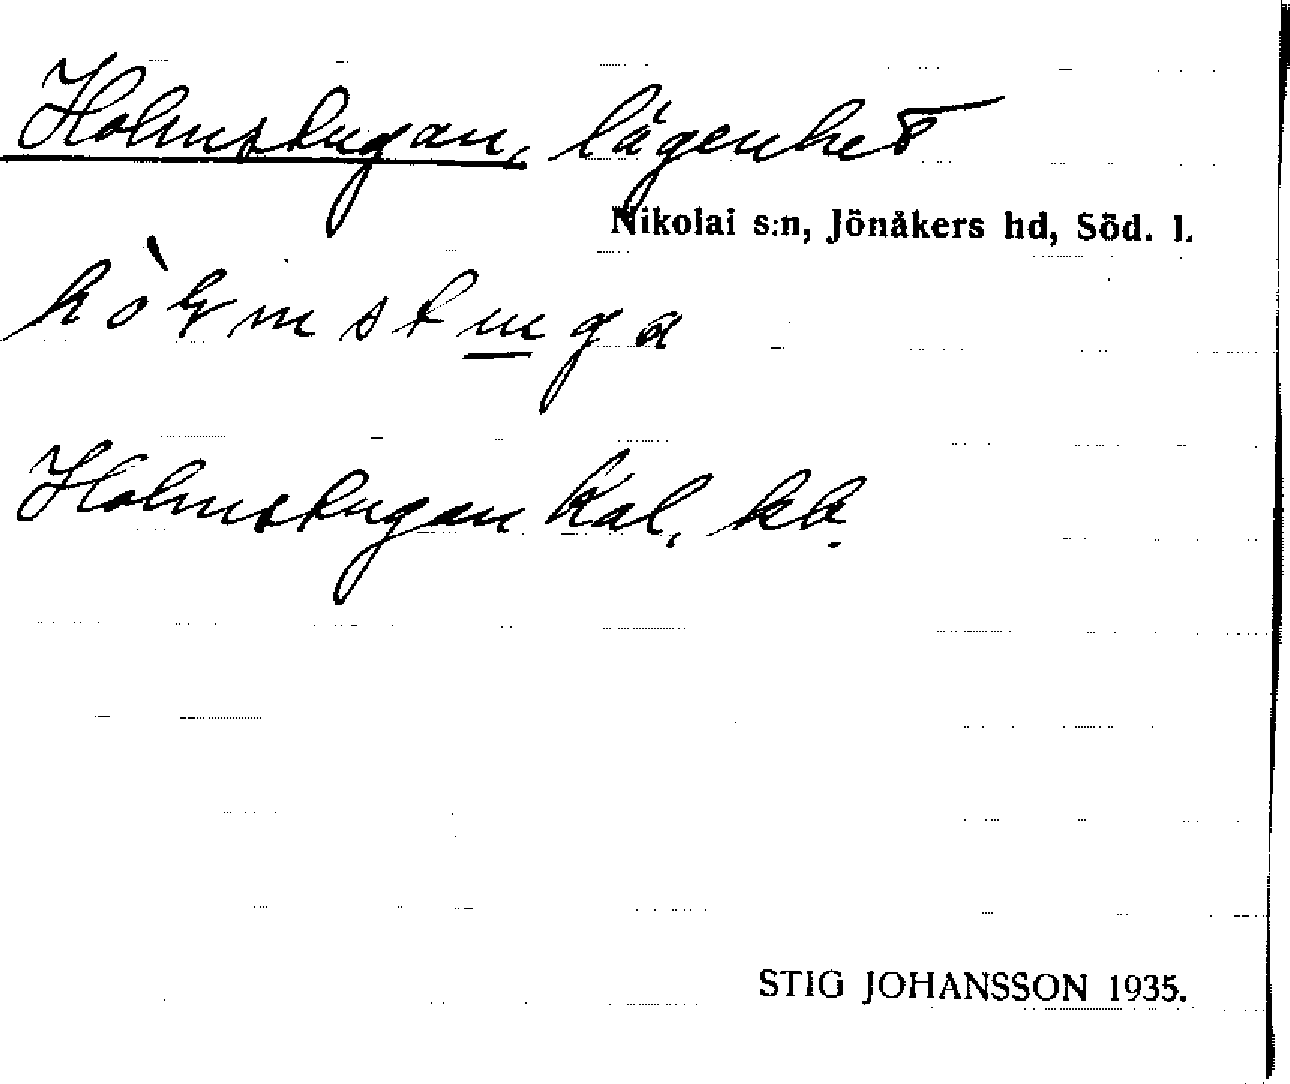 Holmstugan, lägenhet
Nikolai s:n, Jönåkers hd, Söd. l.
Holmstugan kal. kb.
STIG JOHANSSON 1935.